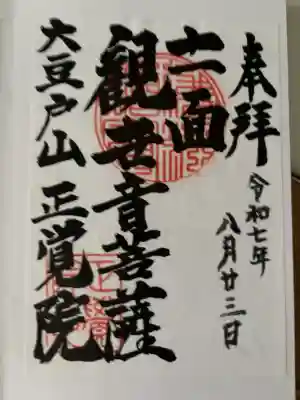 奉拝
令和七年
八月廿三日
十一面
観世音菩薩
大豆戸山 正覚院